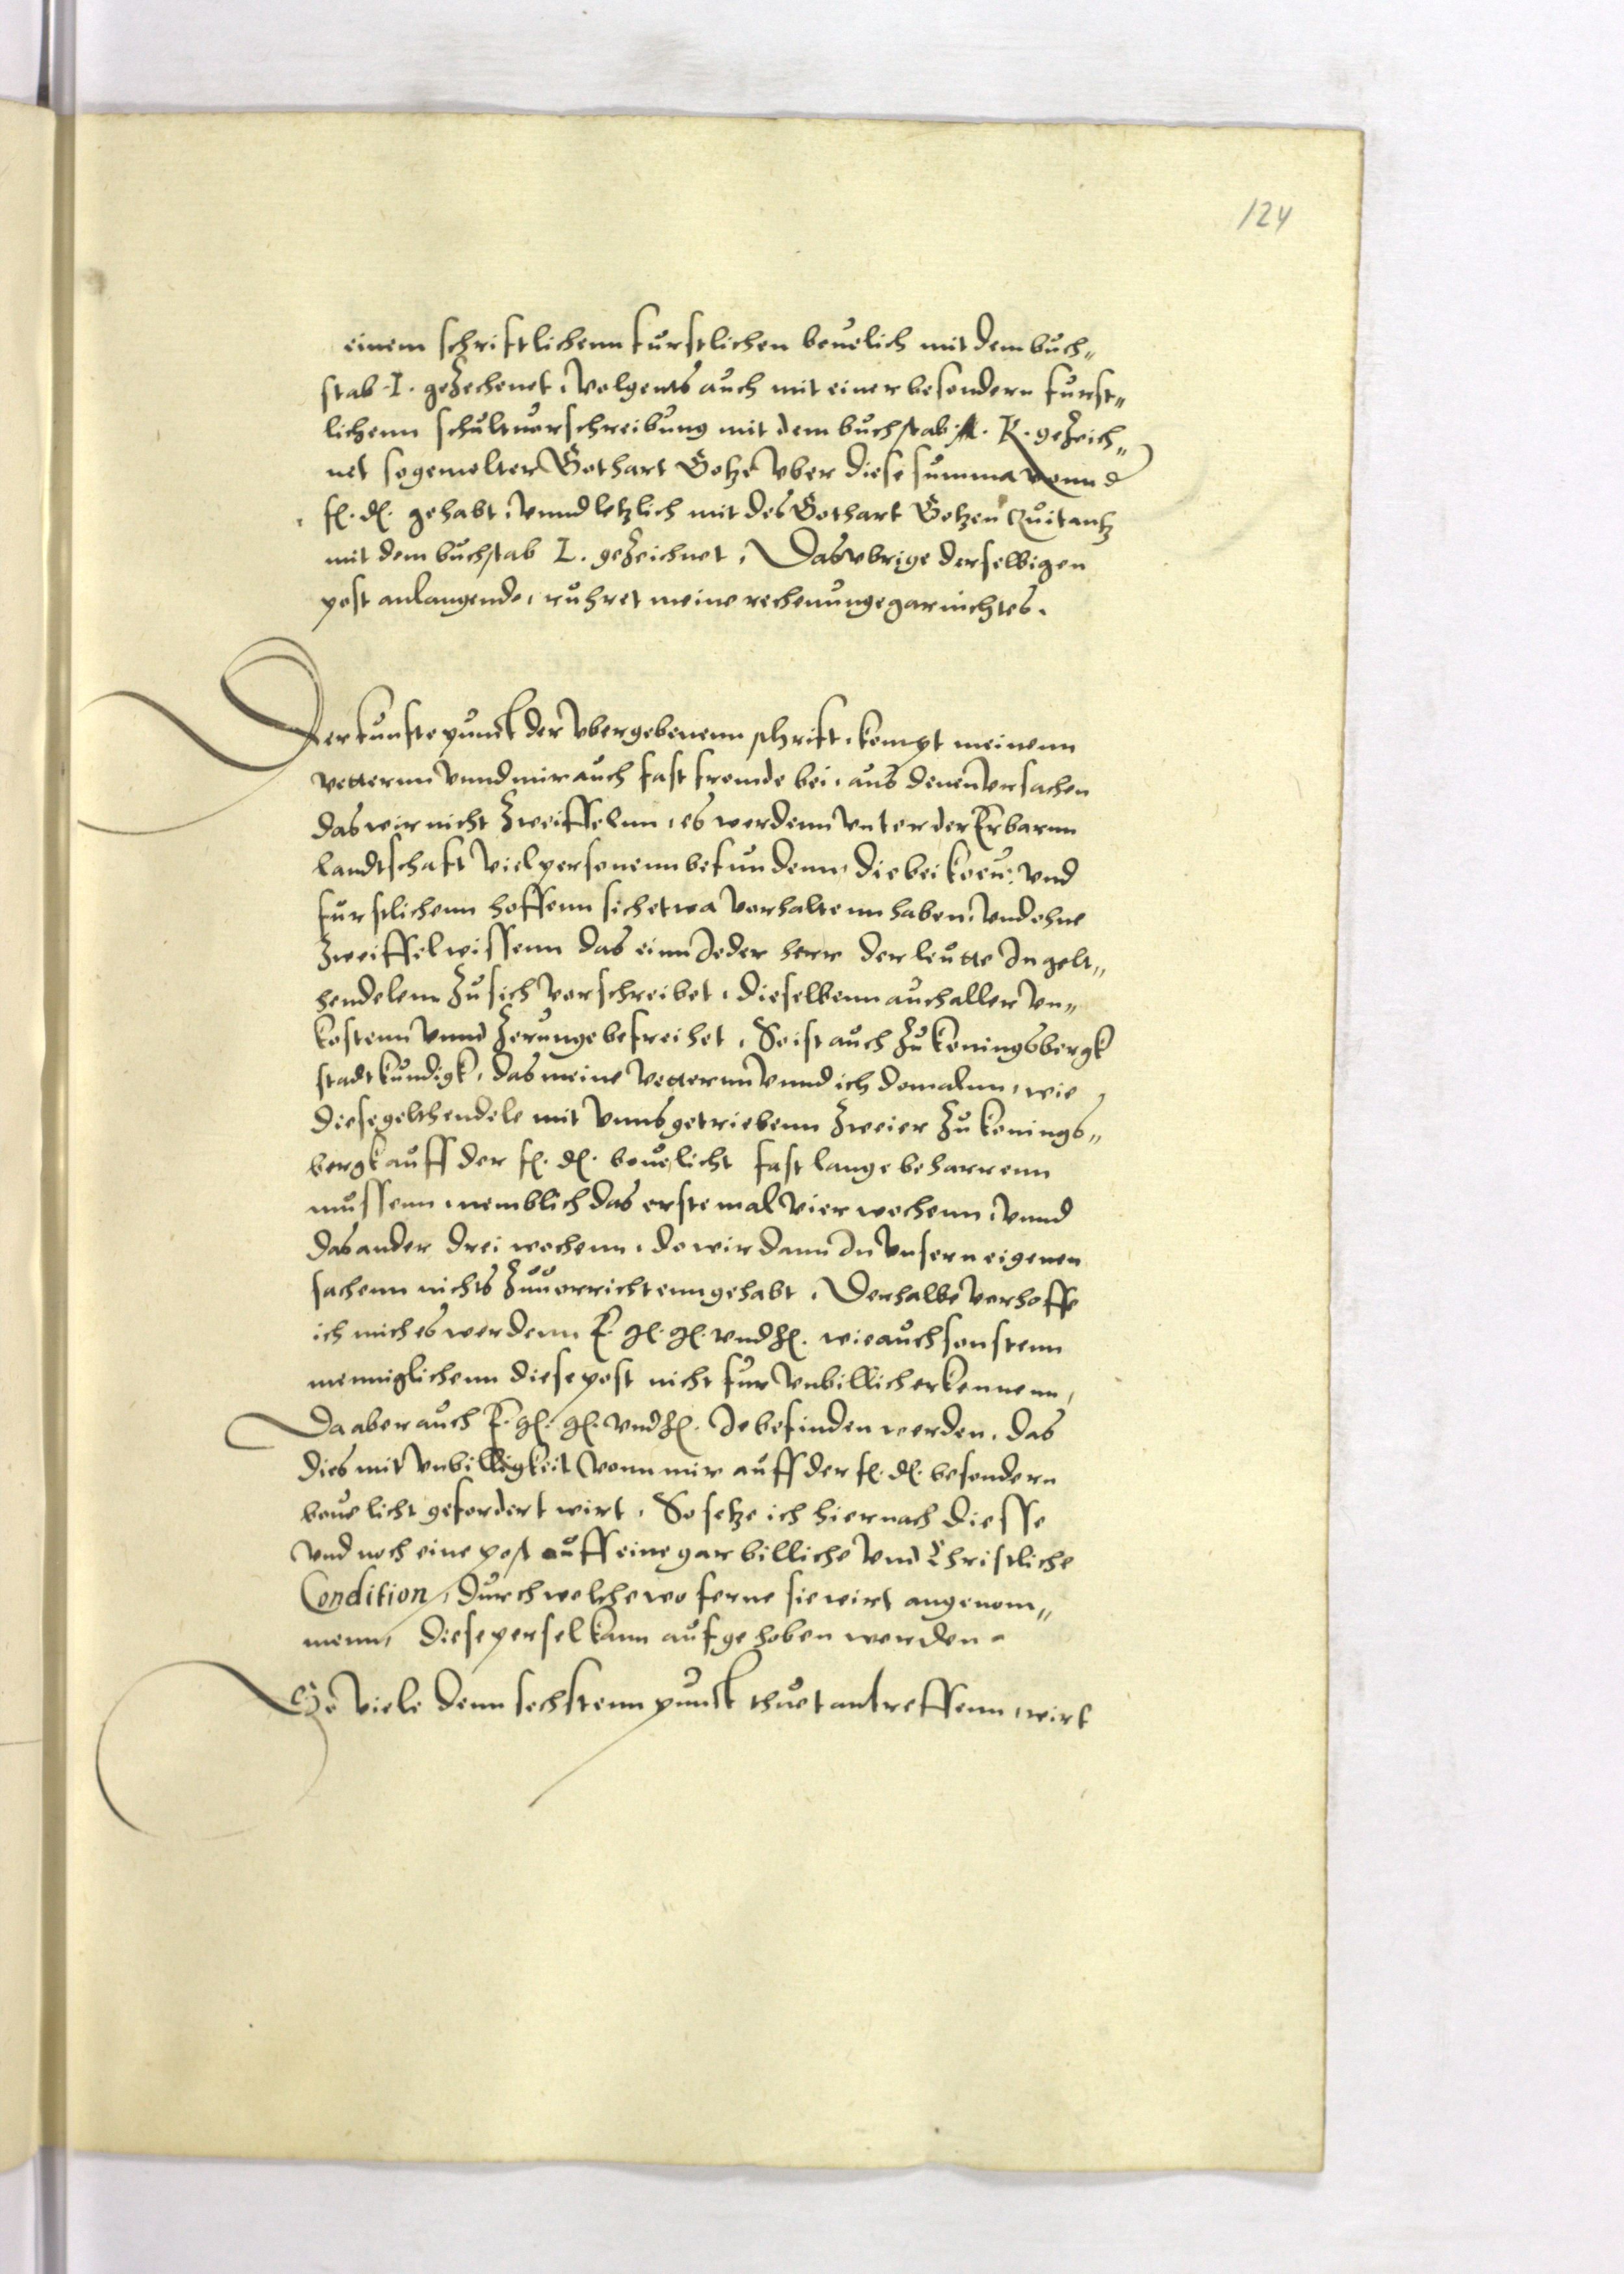 124
einem schriftlichenn furstlichen beuelich mit dem buch„
stab .I. gezechenet, volgents auch mit einer besondern furst„
lichenn schultuerschreibung mit dem buchstab K. gezeich„
net so gemelter Gothart Gotze vber diese summa vonn d
fl. dl. gehabt, vnnd letzlich mit des Gothart Gotzen Quitantz
mit dem buchstab L. gezeichnet, Das vbrige derselbigen
post anlangende, ruhret meine rechenunge gar nichtes.
Der funfte punct der vbergebenenn schrift, kompt meinenn
vetternn vnnd mir auch fast fremde bei, aus denen vrsachen
das wir nicht zweiffelnn, es werdenn vnter der Erbarnn
landtschaft viel personenn befundenn, die bei koen: vnd
furstlichenn hoffenn sich etwa verhaltenn haben, vnd ohne
zweiffel wissenn das einn Jeder herr der leutte In gelt„
hendelenn zu sich verschreibet, dieselbenn auch aller vn„
kostenn vnnd zerunge befreihet, So ist auch zu koningsbergk
stadtkundigk, das meine vetternn vnnd ich domalnn, wie
diese gelthendele mit vnns getriebenn zweier zu konings„
bergk auff der fl. dl. beuelicht fast lange beharrenn
mussenn, nemblich das erste mal vier wochenn, vnnd
das ander drei wochenn, do wir dann In vnsern eigenen
sachenn nichts zuuorrichtenn gehabt, Derhalbe verhoffe
ich mich es werdenn E. gl. gl. vnd hl. wie auch sonstenn
menniglichenn diese post nicht fur vnbillich erkennenn,
Da aber auch E. gl. gl. vnd hl. Je befinden werden, das
dies mit vnbilligkeit vonn mir auff der fl. dl. besondern
beuelicht gefordert wirt, So setze ich hiernach diesse
vnd noch eine post auff eine gar billiche vnd Christliche
Condition, durch welche wo ferne sie wirt angenom„
menn, diese persel kann aufgehoben werden.
So viele denn sechstenn punct thuet antreffenn, wirt